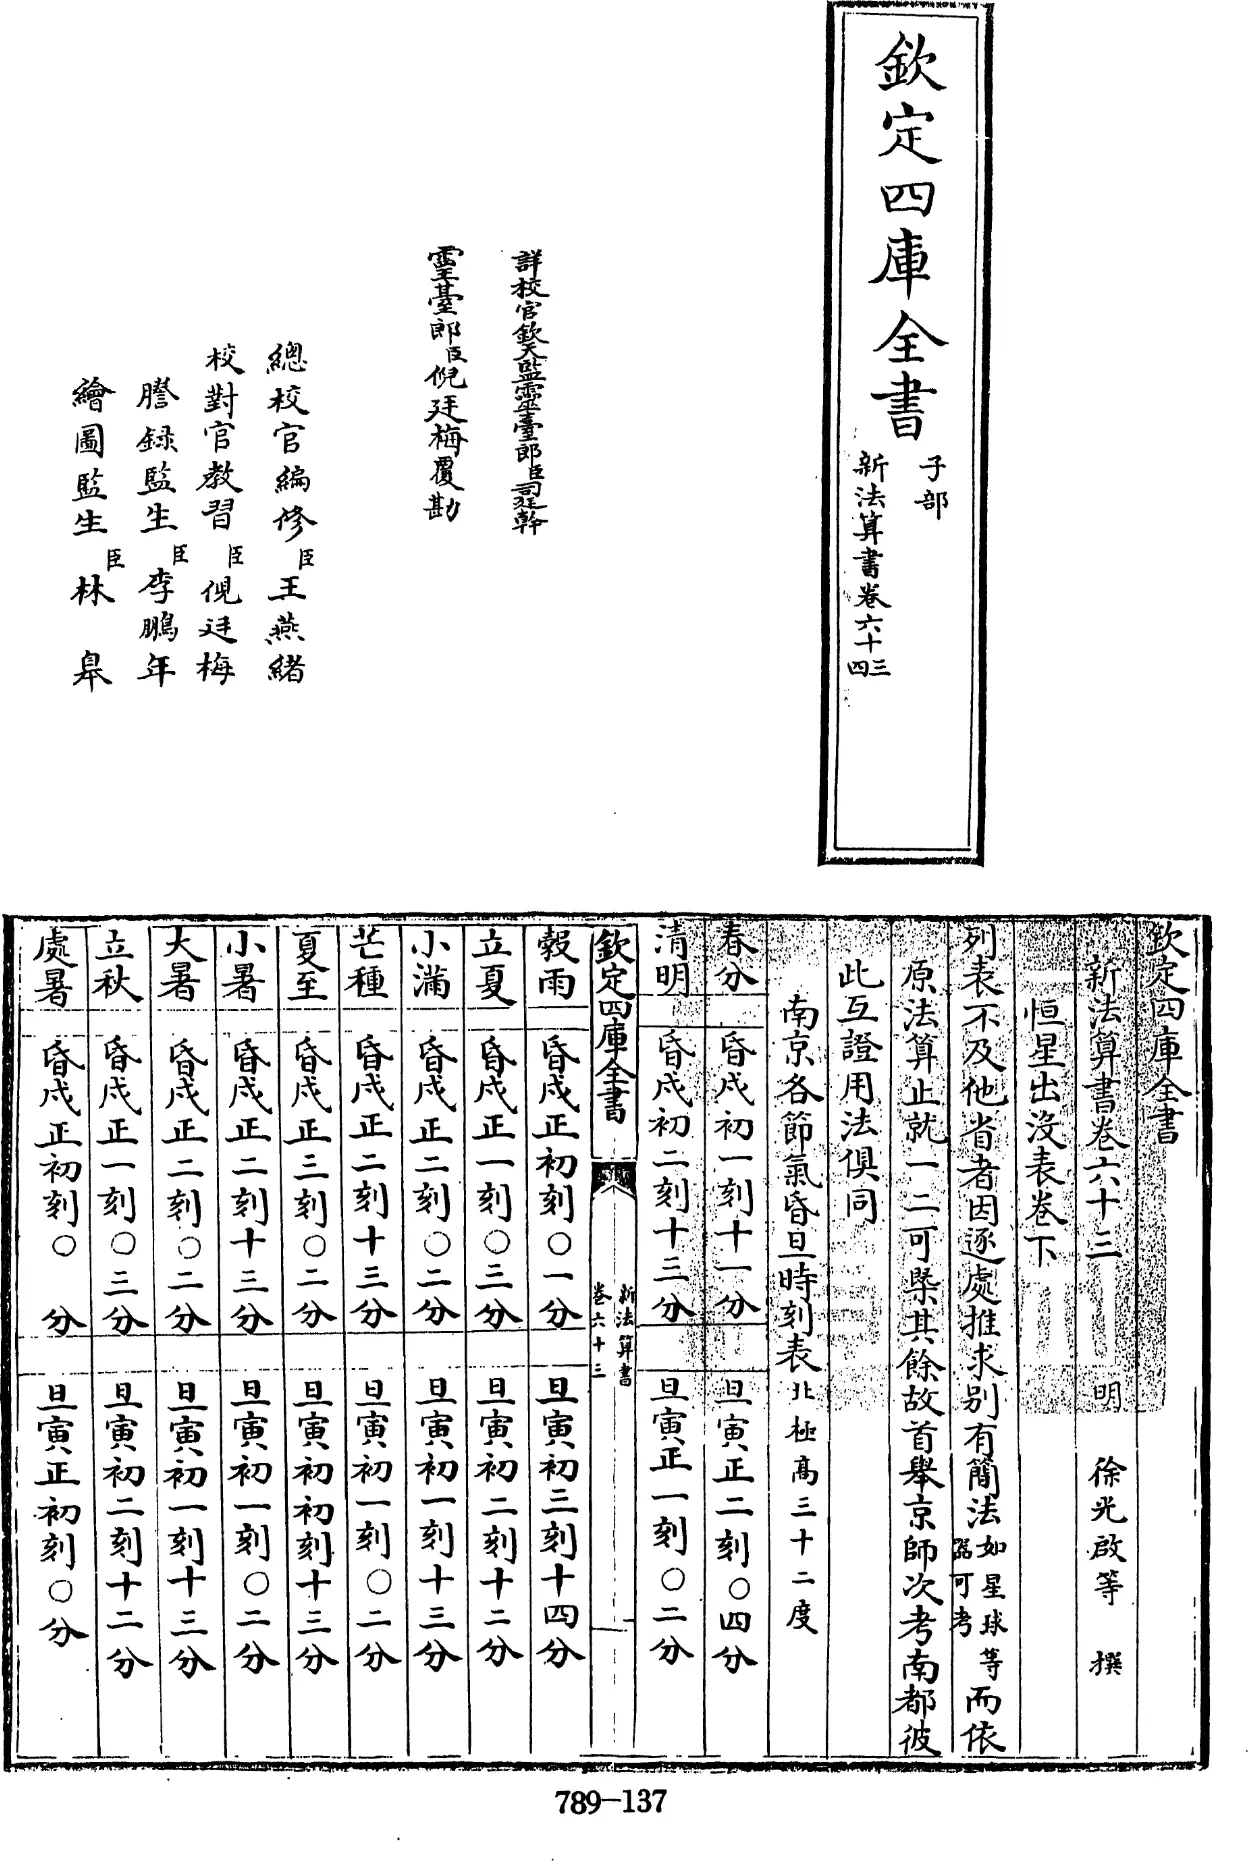 欽定四庫全書
子部
新法算書卷六十三四
詳校官欽天監靈臺郎臣司廷幹
靈臺郎臣倪廷梅覆勘
總校官編修臣王燕緒
校對官教習臣倪廷梅
謄録監生臣李鵬年
繪圖監生臣林臯
欽定四庫全書
新法算書卷六十三 明 徐光啟等 撰
恒星出沒表卷下
列表不及他省者因逐處推求別有簡法如星球等器可考而依
原法算止就一二可槩其餘故首舉京師次考南都彼
此互證用法俱同
南京各節氣昏旦時刻表北極高三十二度
春分 昏戌初一刻十一分 旦寅正二刻〇四分
清明 昏戌初二刻十三分 旦寅正一刻〇二分
欽定四庫全書
新法算書
卷六十三
一
穀雨 昏戌正初刻〇一分 旦寅初三刻十四分
立夏 昏戌正一刻〇三分 旦寅初二刻十二分
小滿 昏戌正二刻〇二分 旦寅初一刻十三分
芒種 昏戌正二刻十三分 旦寅初一刻〇二分
夏至 昏戌正三刻〇二分 旦寅初初刻十三分
小暑 昏戌正二刻十三分 旦寅初一刻〇二分
大暑 昏戌正二刻〇二分 旦寅初一刻十三分
立秋 昏戌正一刻〇三分 旦寅初二刻十二分
處暑 昏戌正初刻〇 分 旦寅正初刻〇分
789-137